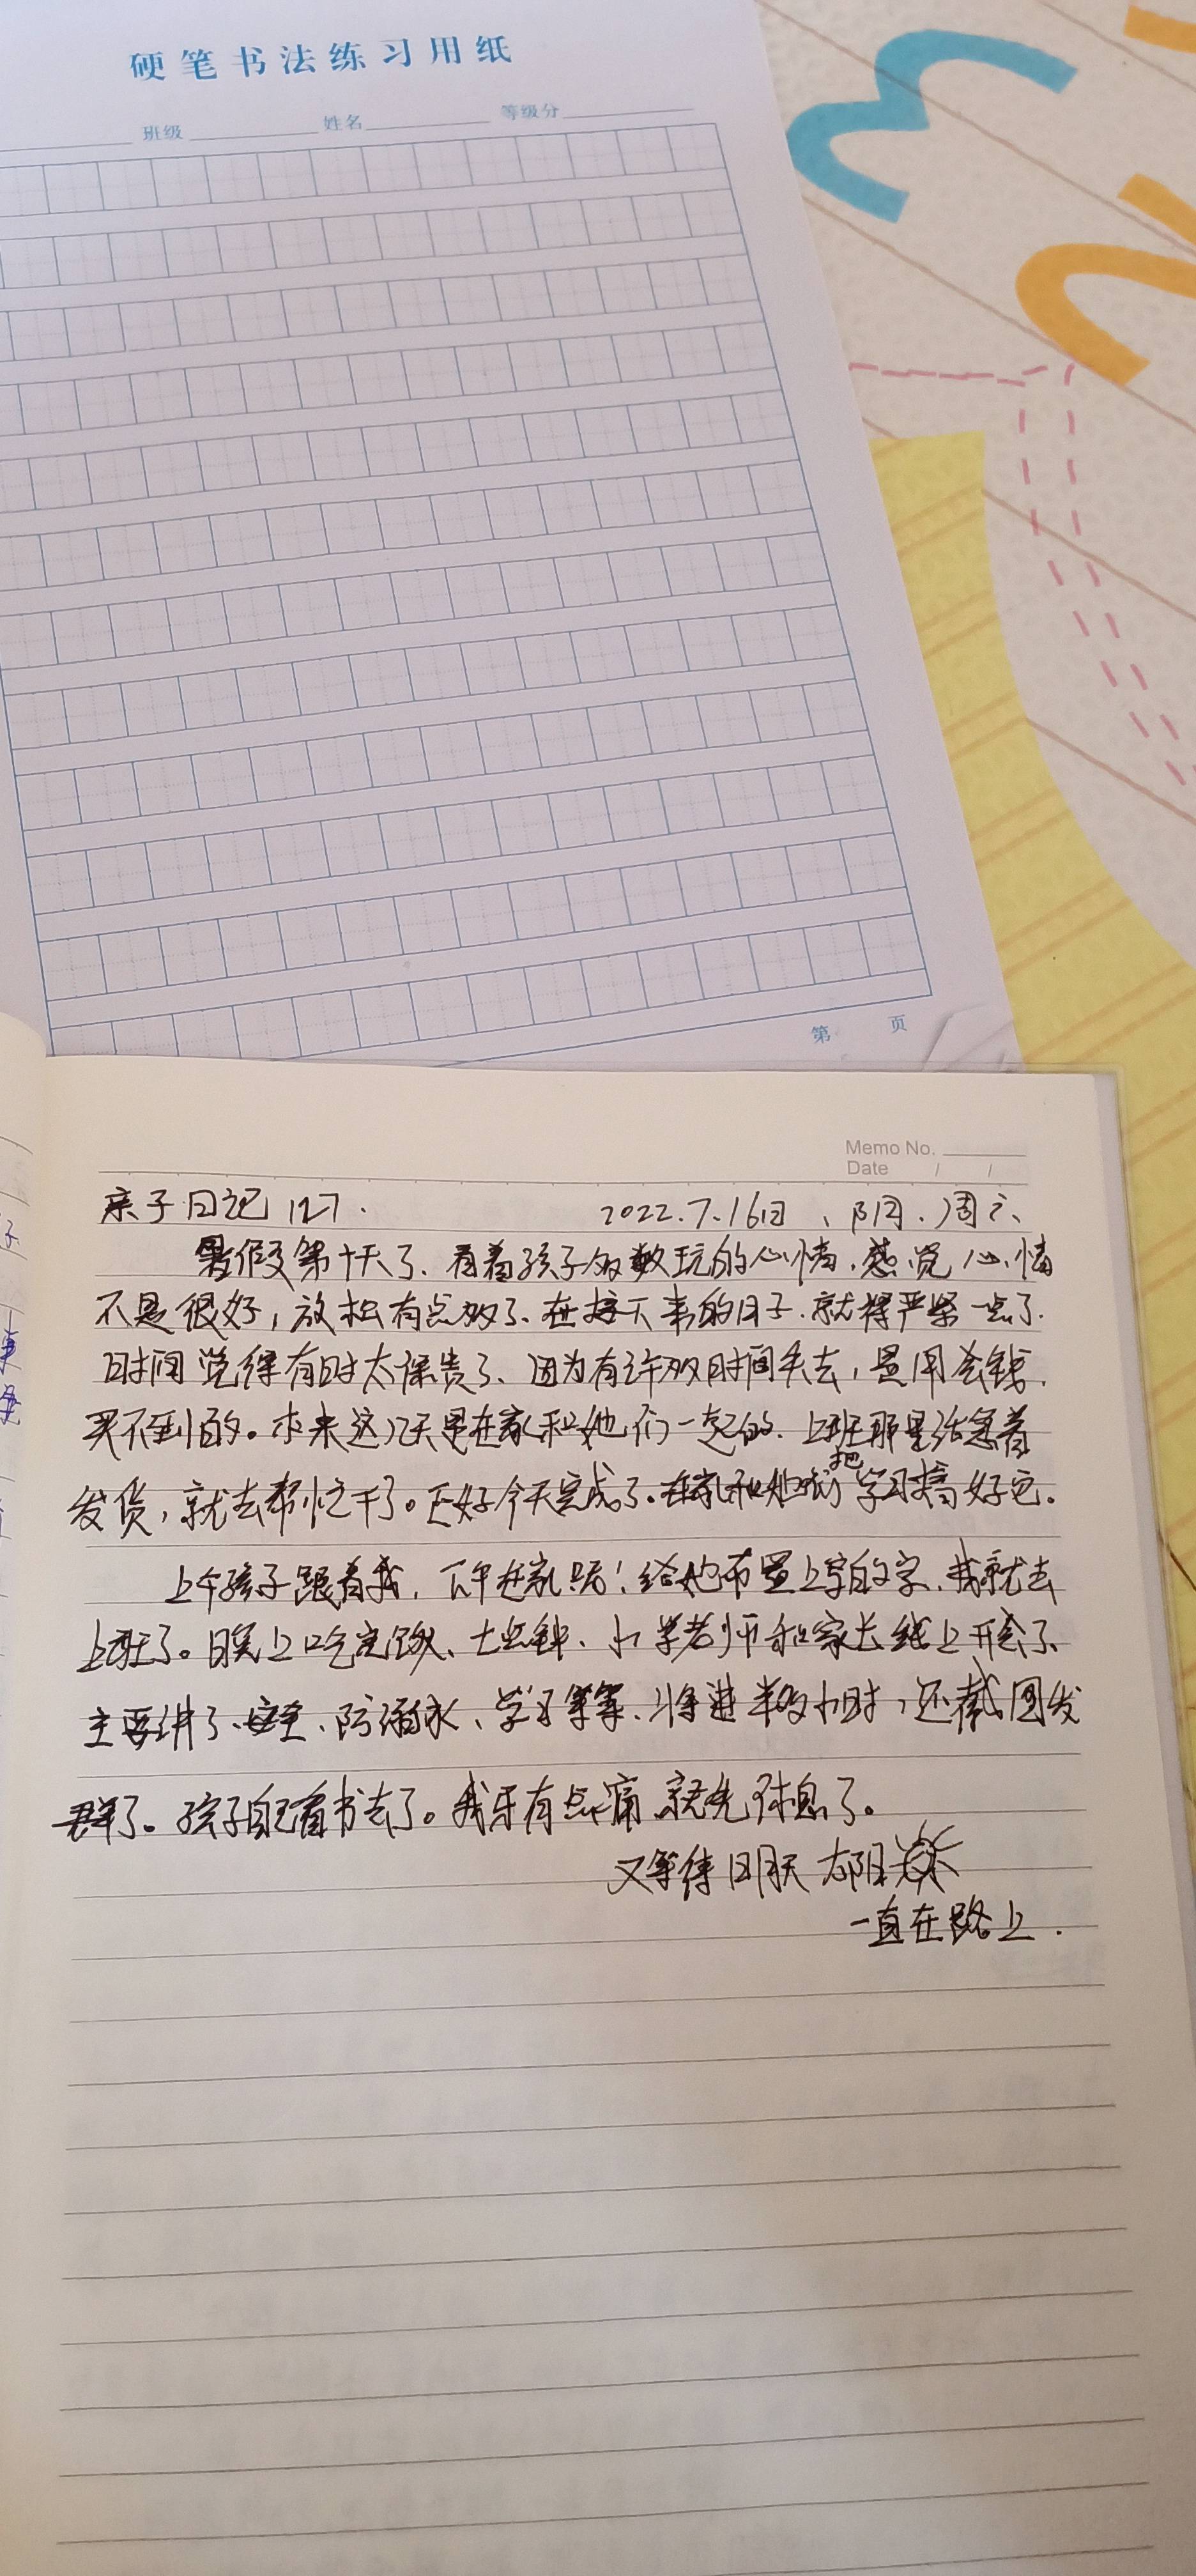 硬笔书法练习用纸
班级 姓名 等级分
第 页
Memo No.
Date / /
亲子日记127. 2022.7.16日、阴、周六、
暑假第十天了、看着孩子多数玩的心情,感觉心情
不是很好,放松有点多了、在接下来的日子.就得严紧一点了.
时间觉得有时太保贵了、因为有许多时间失去,是用金钱.
买不到的。本来这几天是在家和她们一起的、上班那里活急着
发货,就去帮忙干了。还好今天完成了.在家和她们把学习搞好它.
上午孩子跟着我,下午在家 ! 给她布置上写的字、我就去
上班了。晚上吃完饭、七点钟、小学老师和家长线上开会了、
主要讲了、安全、防溺水、学习等等、将进半多小时,还截图发
群了。孩子自己看书去了。我牙有点痛、就先休息了。
又等待明天太阳
一直在路上.